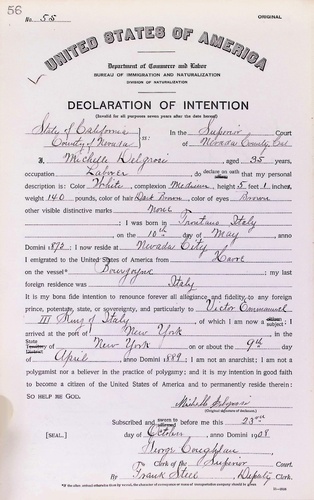 56
No. 55
ORIGINAL
UNITED STATES OF AMERICA
Department of Commerce and Labor
BUREAU OF IMMIGRATION AND NATURALIZATION
DIVISION OF NATURALIZATION
DECLARATION OF INTENTION
(Invalid for all purposes seven years after the date hereof)
State of California
County of Nevada ss: In the Superior Court
of Nevada County Cal.
I, Michelle Delgrosi, aged 35 years,
occupation Laborer, do declare on oath that my personal
description is: Color White, complexion Medium, height 5 feet 1 inches,
weight 140 pounds, color of hair Dark Brown, color of eyes Brown
other visible distinctive marks None
I was born in Italy
, on the 10th day of May, anno
Domini 1872; I now reside at Nevada City
I emigrated to the United States of America from Havre
on the vessel* Bourgogne; my last
foreign residence was Italy
It is my bona fide intention to renounce forever all allegiance and fidelity to any foreign
prince, potentate, state, or sovereignty, and particularly to Victor Emmanuel
III King of Italy, of which I am now a subject; I
arrived at the port of New York, in the
State of New York on or about the 9th day
of April, anno Domini 1889; I am not an anarchist; I am not a
polygamist nor a believer in the practice of polygamy; and it is my intention in good faith
to become a citizen of the United States of America and to permanently reside therein:
SO HELP ME GOD.
Michelle Delgrosi
(Original signature of declarant.)
Subscribed and sworn to before me this 23rd
[SEAL.] day of October, anno Domini 1908
George Coughlan
Clerk of the Superior Court.
By Frank Steel, Deputy Clerk.